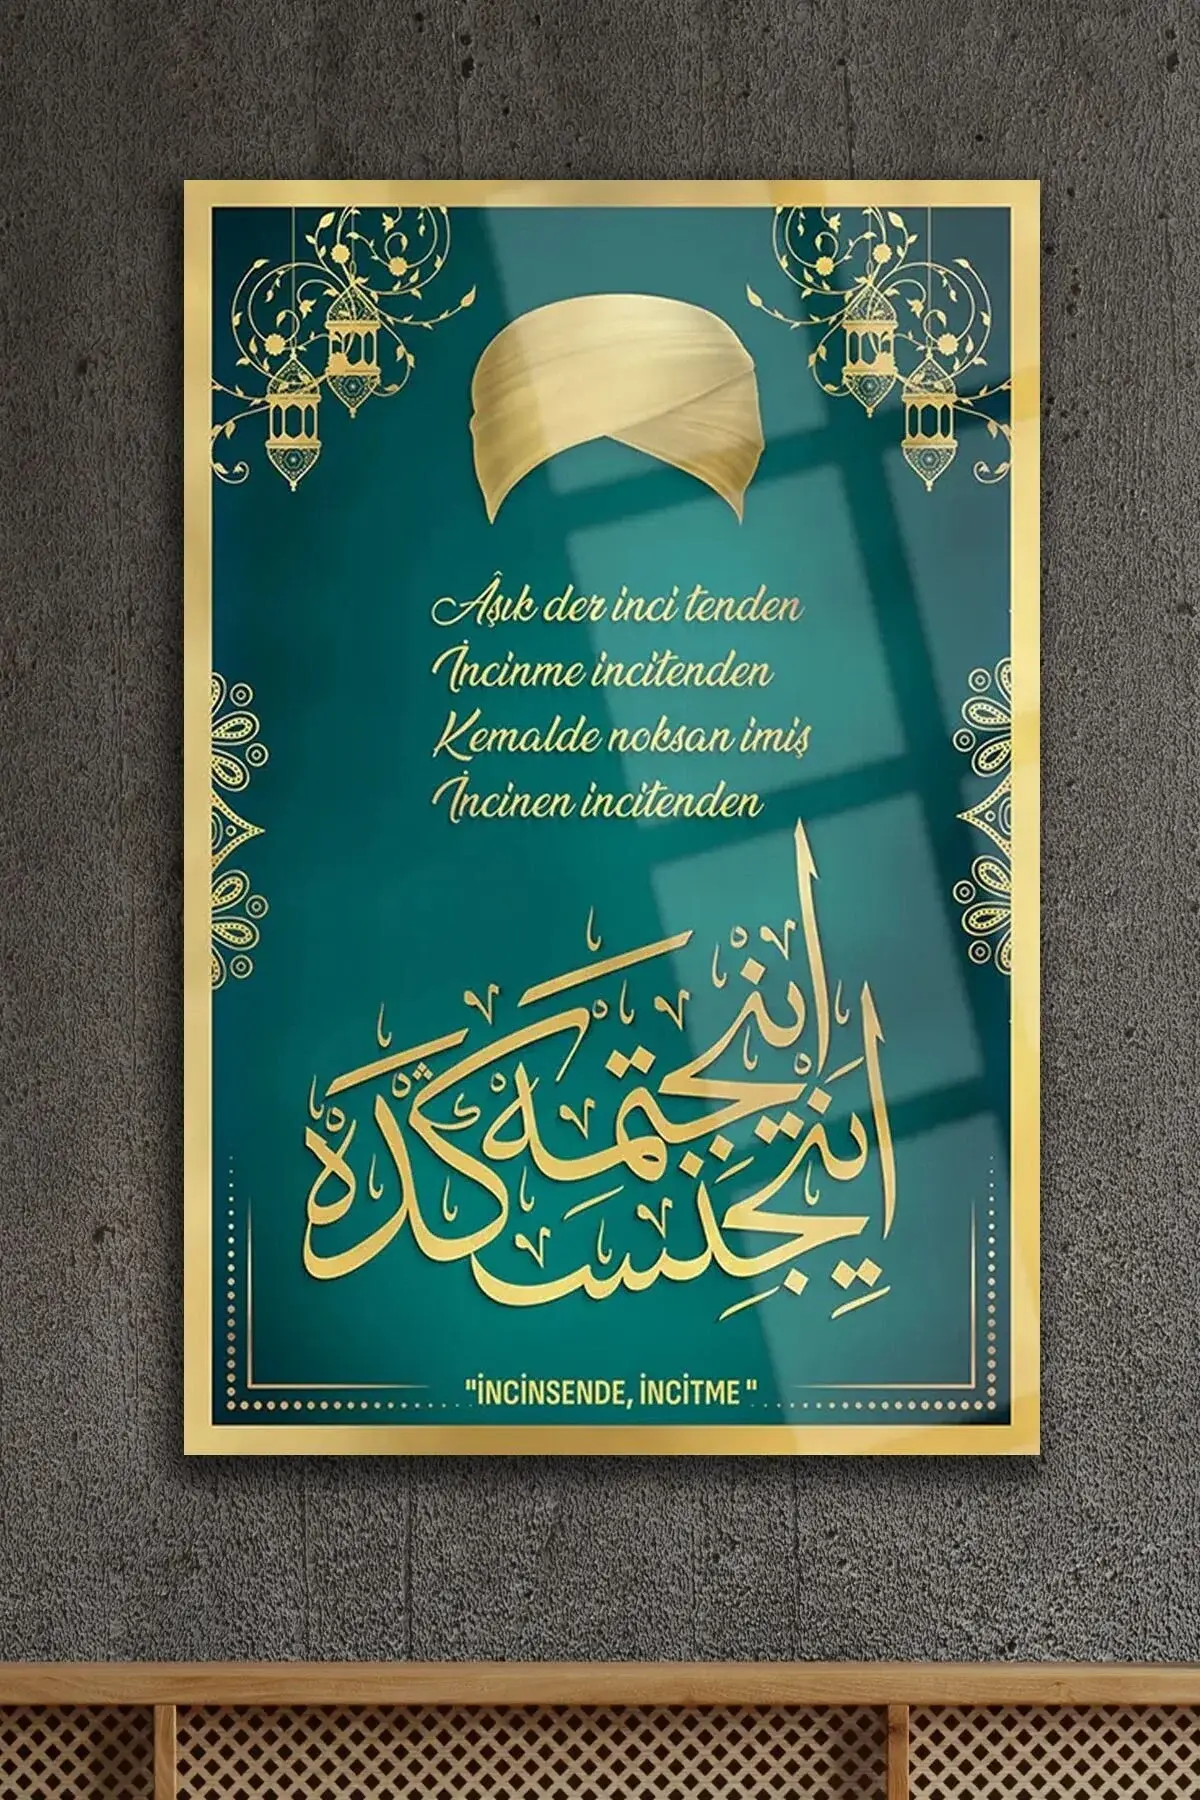 Âşık der inci tenden
İncinme incitenden
Kemalde noksan imiş
İncinen incitenden
اينجنساڭده اينجتمه
"İNCİNSENDE, İNCİTME "